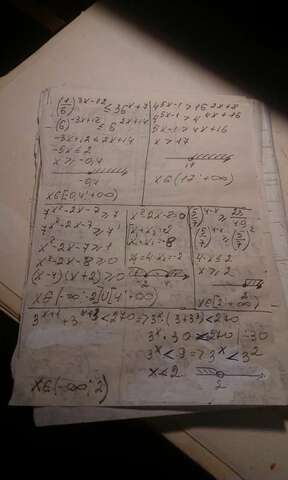 (1/6)^3x-12 ≤ 36^x+7
(6)^-3x+12 ≤ 6^2x+14
-3x+12 ≤ 2x+14
-5x ≤ 2
x ≥ -0,4
-0,4
4^5x-1 > 16^2x+8
4^5x-1 > 4^4x+16
5x-1 > 4x+16
x > 17
17
x∈(17;+∞)
7^x²-2x-7 ≥ 7
7^x²-2x-7 ≥ 7¹
x²-2x-7 ≥ 1
x²-2x-8 ≥ 0
(x-4)(x+2) ≥ 0
x∈(-∞;-2]U[4;+∞)
x²-2x-8=0
x₁+x₂=2
x₁*x₂=-8
x₁=4 x₂=-2
4-x ≤ 2
x ≥ 2
2
x∈[2;+∞)
3^x+1 + 3^x+3 < 270
3^x·30 < 270 | :30
3^x < 9 => 3^x < 3²
x < 2
2
x∈(-∞;2)